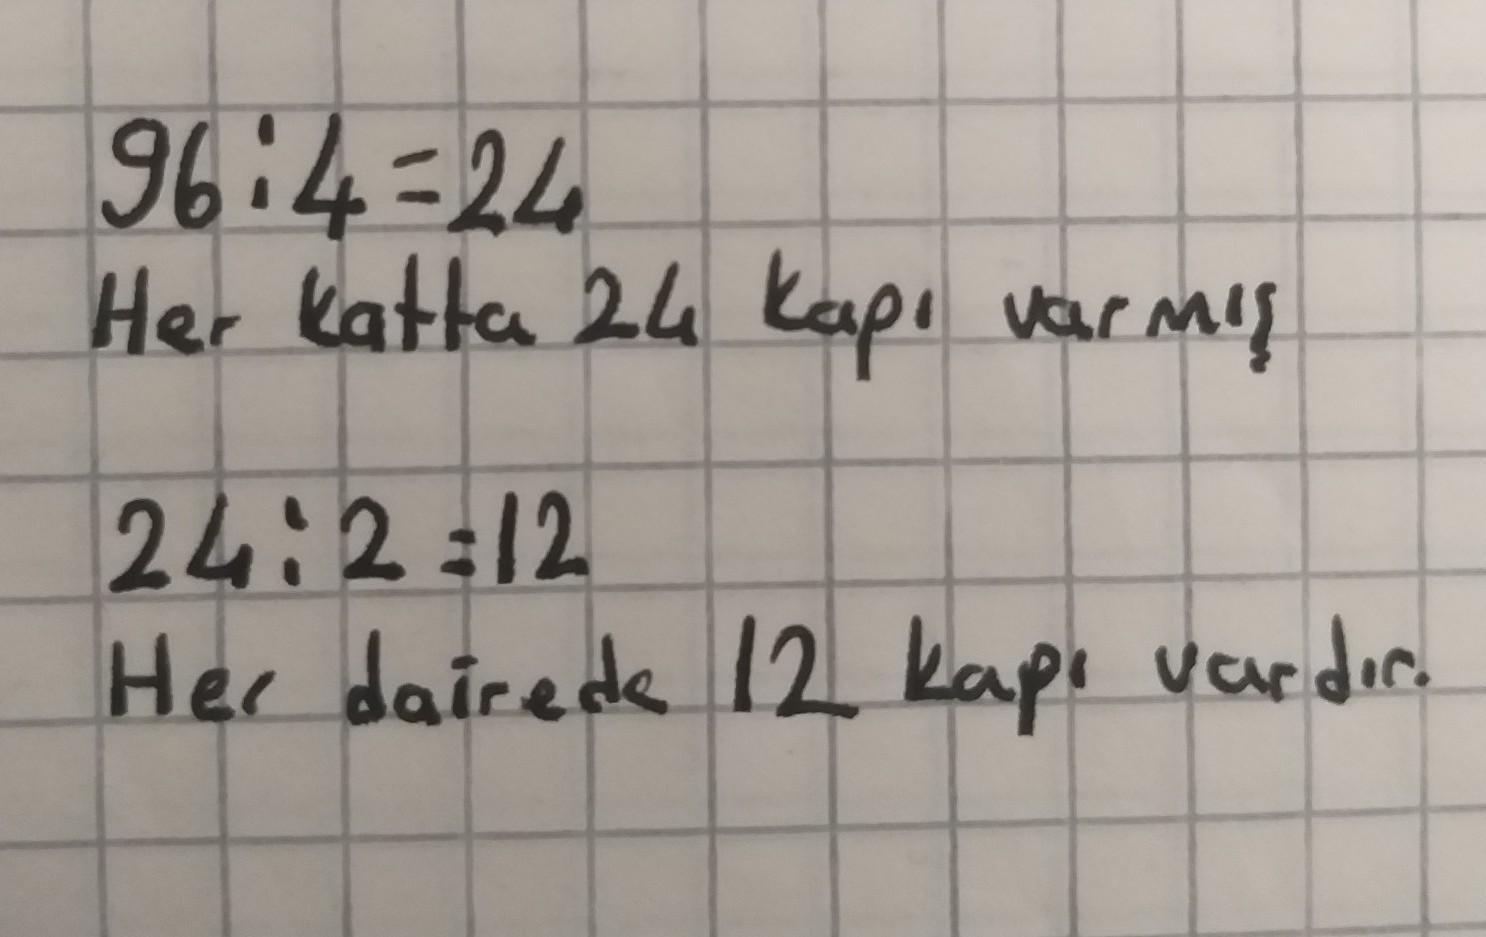 96:4=24
Her katta 24 kapı varmış
24:2=12
Her dairede 12 kapı vardır.